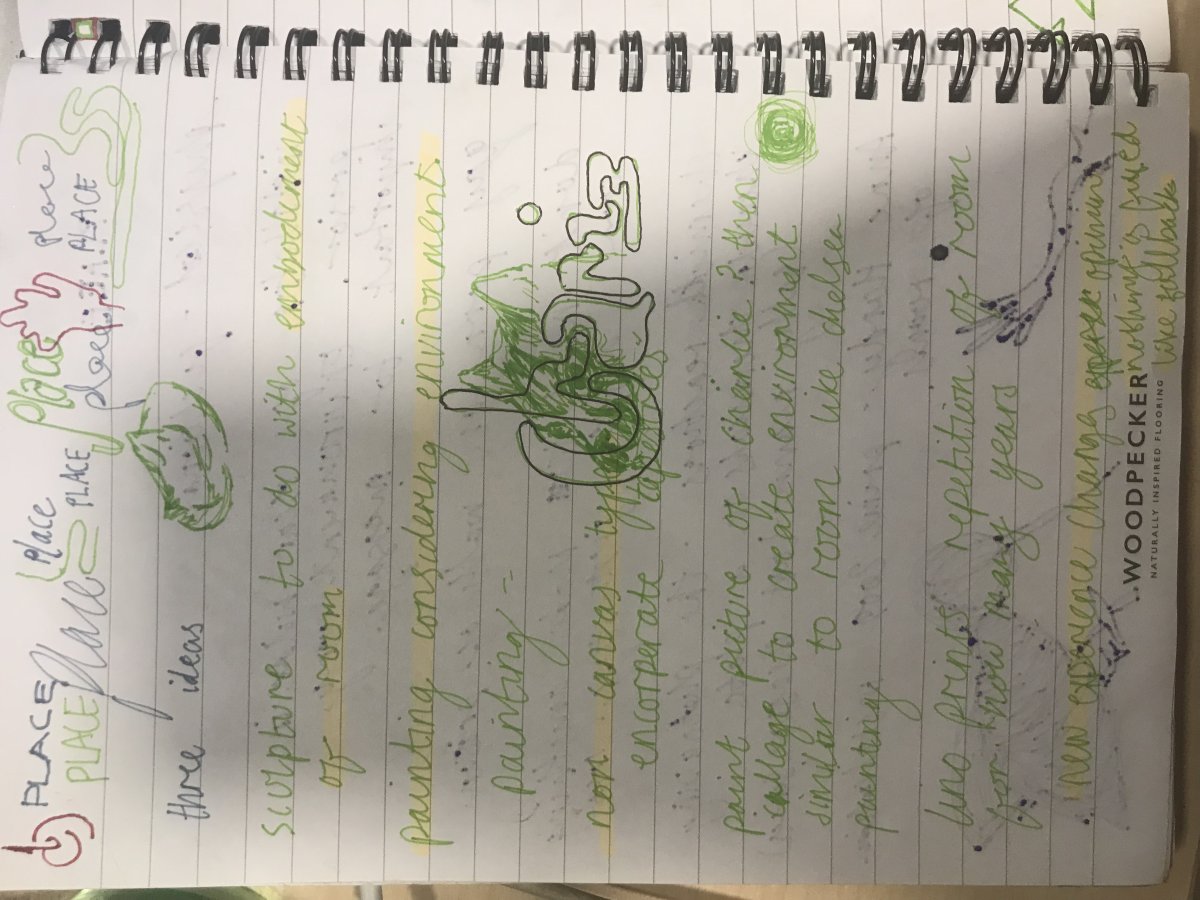 PLACE Place place
PLACE Place PLACE place PLACE
three ideas
sculpture to do with embodiment
of room
painting considering environment.
painting --
non canvas type
encorperate
paint picture of charlie? then
collage to create environment
similar to room like chelsea
painting
lino prints repetition of room
for how many years
new experience change opinion
nothing is fixed
like
WOODPECKER
NATURALLY INSPIRED FLOORING